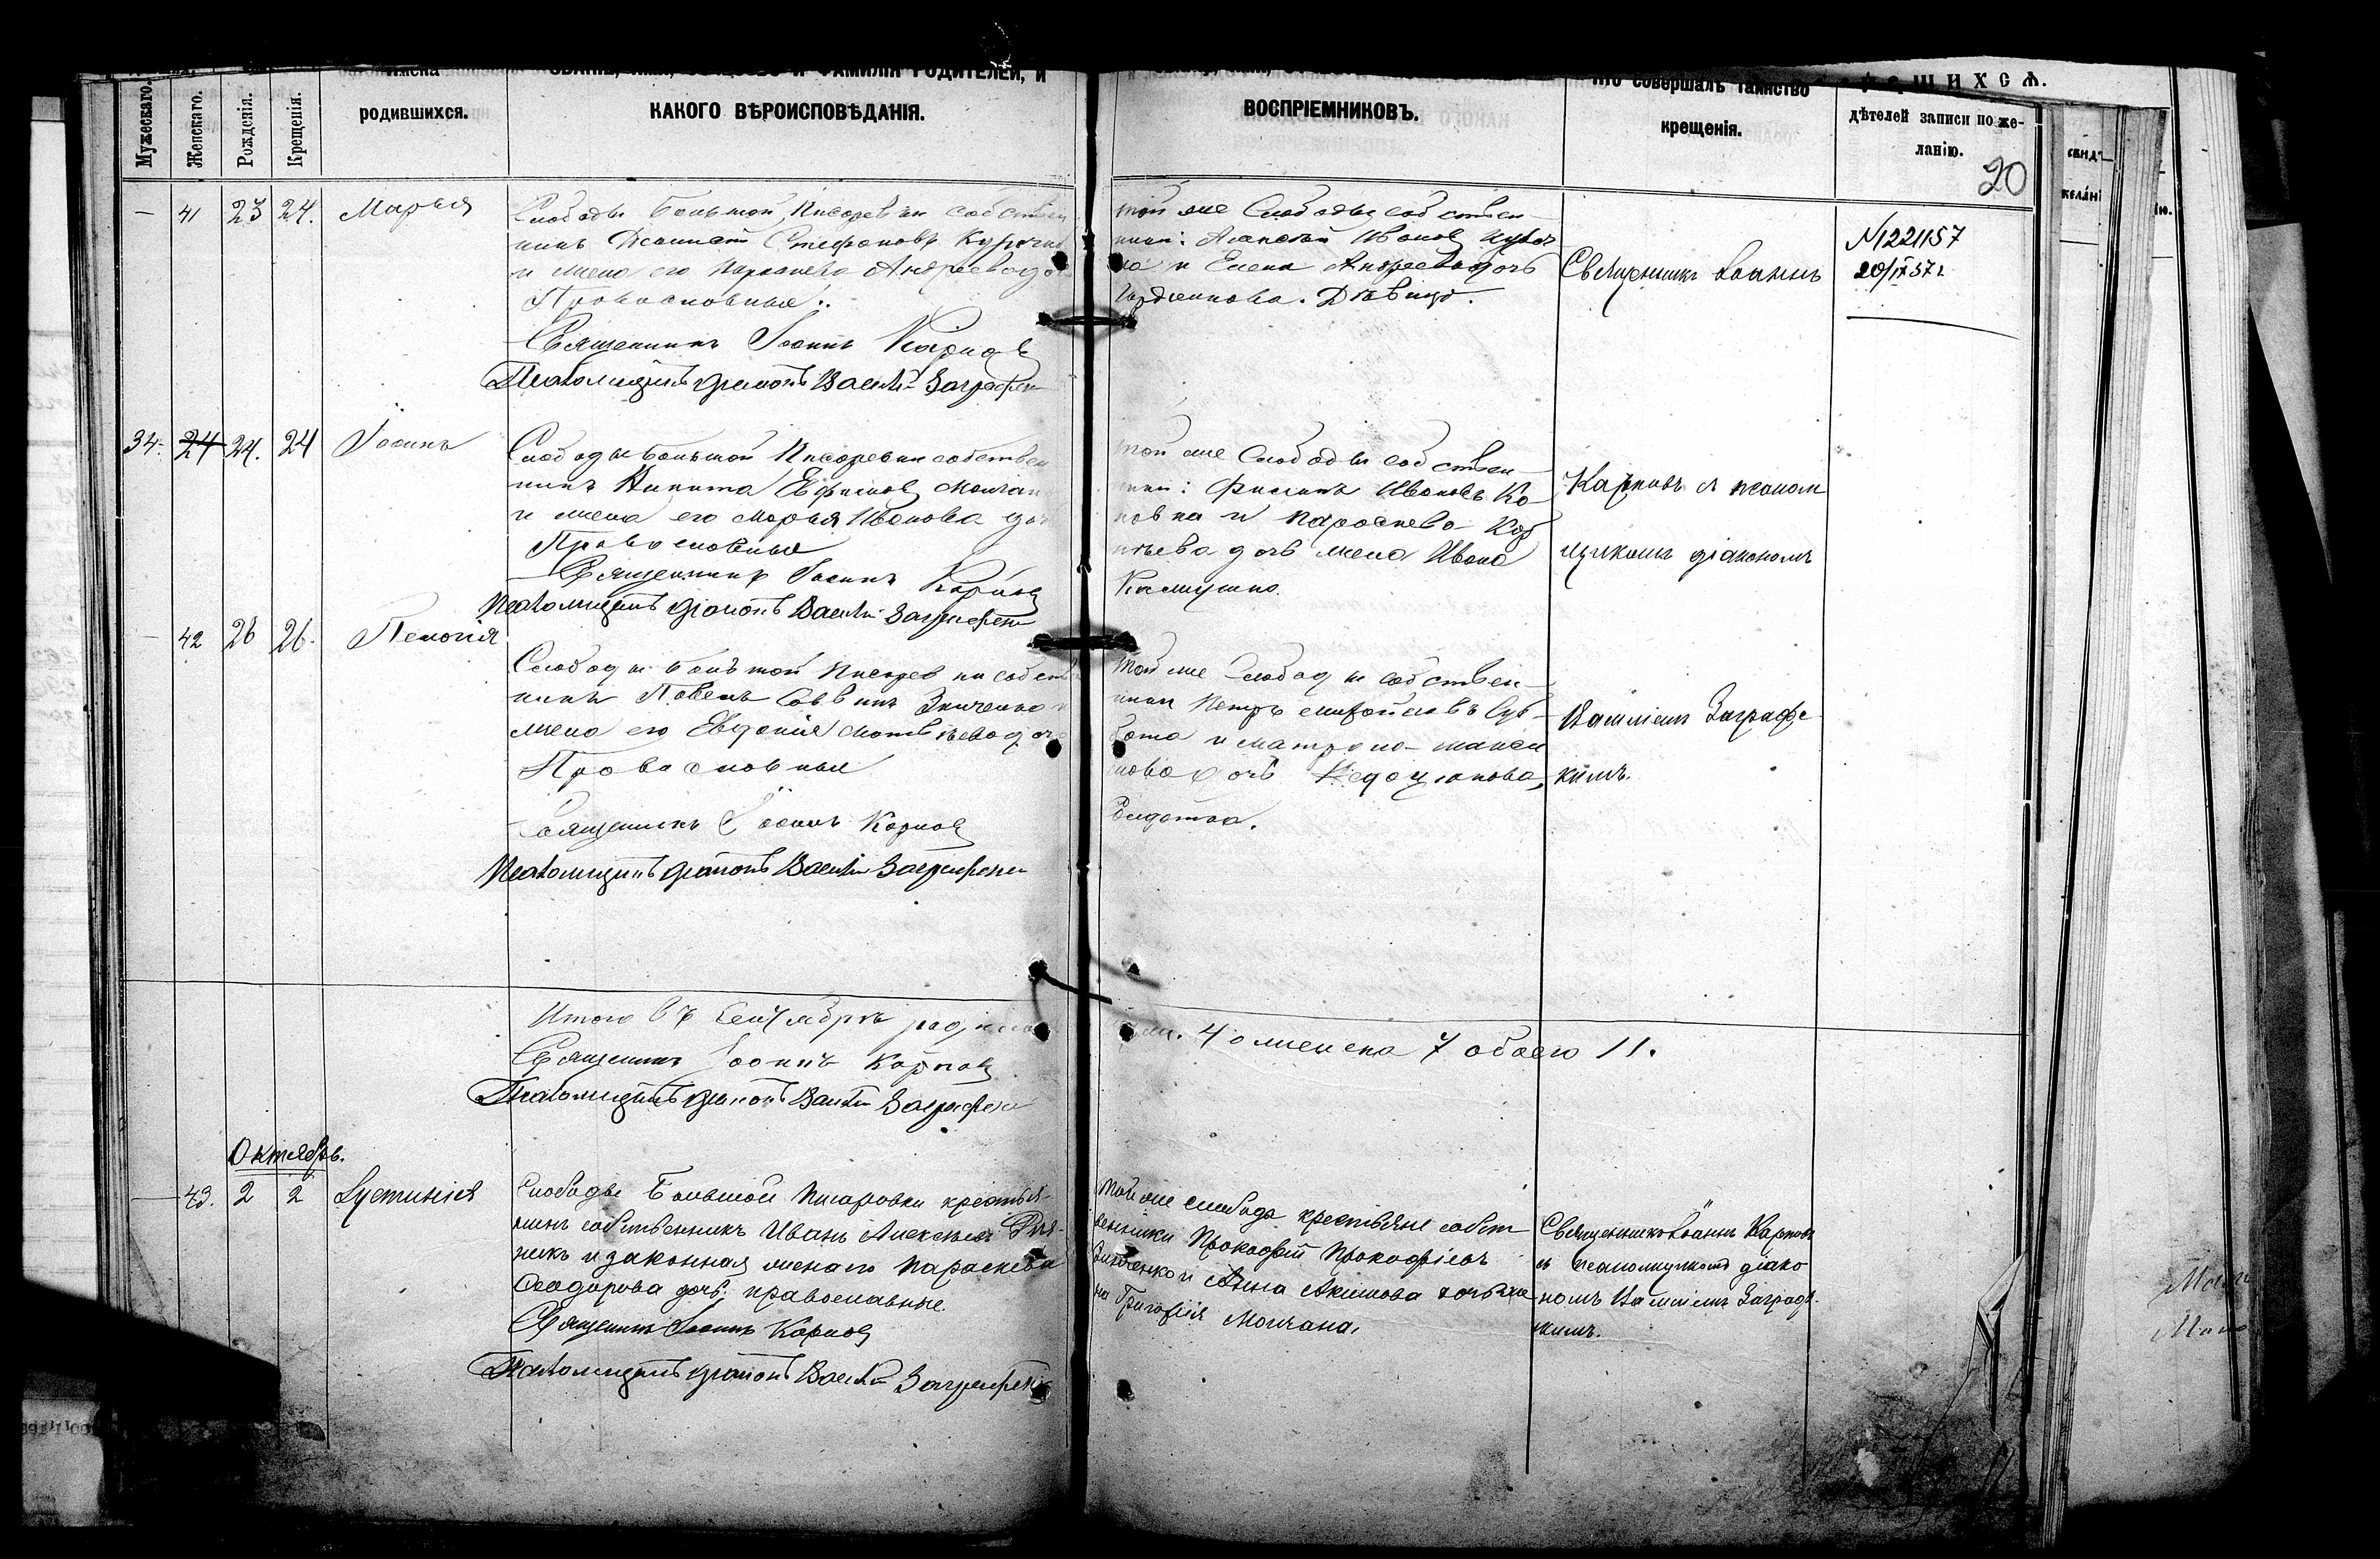 Мужескаго.
Женскаго.
Рожденія.
Крещенія.
родившихся.
ФАМИЛІЯ РОДИТЕЛЕЙ, И
КАКОГО ВѢРОИСПОВѢДАНІЯ.
ВОСПРІЕМНИКОВЪ.
Кто совершалъ таинство
крещенія.
дѣтелей записи по же-
ланію.
20
— 41 23 24. Марья
Слободы Большой Писаревки собствен
никъ Стефановъ
и жена его Параскева Андреева до
Православные.
Священникъ Іоаннъ Карпов
Псаломщикъ діаконъ Василій Заграфскі
той же Слободы собствен-
ники: Иванов
и Елена Андреева дочь
Дѣвица.
Священникъ Іоаннъ
№221157
20/IX 57 г
34. 24 24. 24 Іоаннъ
Слободы Большой Писаревки собствен
никъ Никита Ефимов Молчан
и жена его Марья Иванова доч
Православные
Священникъ Іоаннъ Карпов
Псаломщикъ діаконъ Василій Заграфскі
той же Слободы собствен-
ники: Филипъ Ивановъ Ко-
и Параскева
дочь жена Ивана
Карповъ и псалом
щикомъ діакономъ
— 42 26 26. Пелагія
Слободы Большой Писаревки собств
никъ Павелъ Саввинъ Зинченко и
жена его Евдокія Матвѣева доч
Православные
Священникъ Іоаннъ Карпов
Псаломщикъ діаконъ Василій Заграфскі
Той же Слободы собствен-
ники Петръ Суб-
бота и Матрона Макси
мова дочь
Василіемъ Заграфс
кимъ.
Итого въ Сентябрѣ родилось
м. 4 а женска 7 обоего 11.
Священникъ Іоаннъ Карпов
Псаломщикъ діаконъ Василій Заграфскі
Октябрь.
— 43. 2 2 Іустинія
Слободы Большой Писаровки крестья-
нинъ собственникъ Иванъ Алексѣевъ
никъ и законная жена его Параскева
Ѳеодорова дочь; православные.
Священникъ Іоаннъ Карпов
Псаломщикъ діаконъ Василій Заграфскі
Той же слободы крестьяне собст
венники Прокофій Прокофіевъ
Зинченко и Анна Акимова дочь же
на Григорія Молчана,
Священникъ Іоаннъ Карповъ
и псаломщикомъ діако
номъ Василіемъ Заграфс
кимъ.